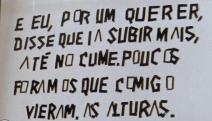 E EU, POR UM QUERER,
DISSE QUE IA SUBIR MAIS,
ATÉ NO CUME. POUCOS
FORAM OS QUE COMIGO
VIERAM, AS ALTURAS.